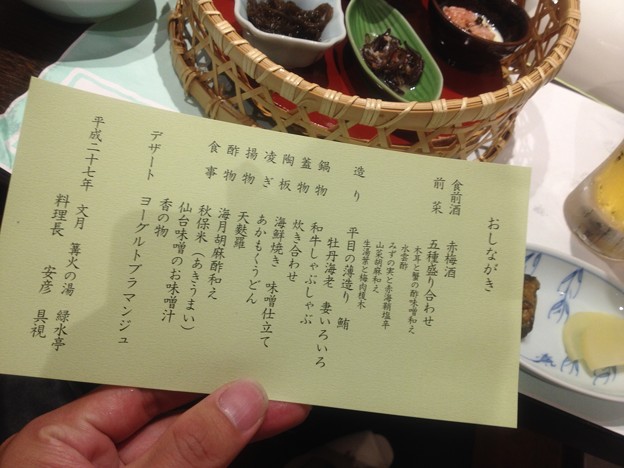 おしながき
食前酒　赤梅酒
前菜　五種盛り合わせ
木耳と蟹の酢味噌和え
水雲酢
みずの実と赤海鞘塩辛
山菜胡麻和え
生湯葉と梅肉枝木
造り　平目の薄造り　鮪
牡丹海老　妻いろいろ
鍋物　和牛しゃぶしゃぶ
蓋物　炊き合わせ
陶板　海鮮焼き　味噌仕立て
凌ぎ　あかもくうどん
揚物　天麩羅
酢物　海月胡麻酢和え
食事　秋保米（あきうまい）
仙台味噌のお味噌汁
香の物
デザート　ヨーグルトブラマンジュ
平成二十七年　文月　篝火の湯　緑水亭
料理長　安彦　具視